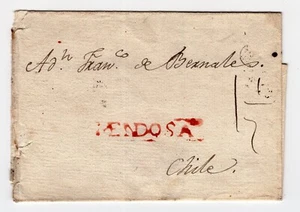 Adn. Franco. de Bernales.
MENDOSA
Chile.